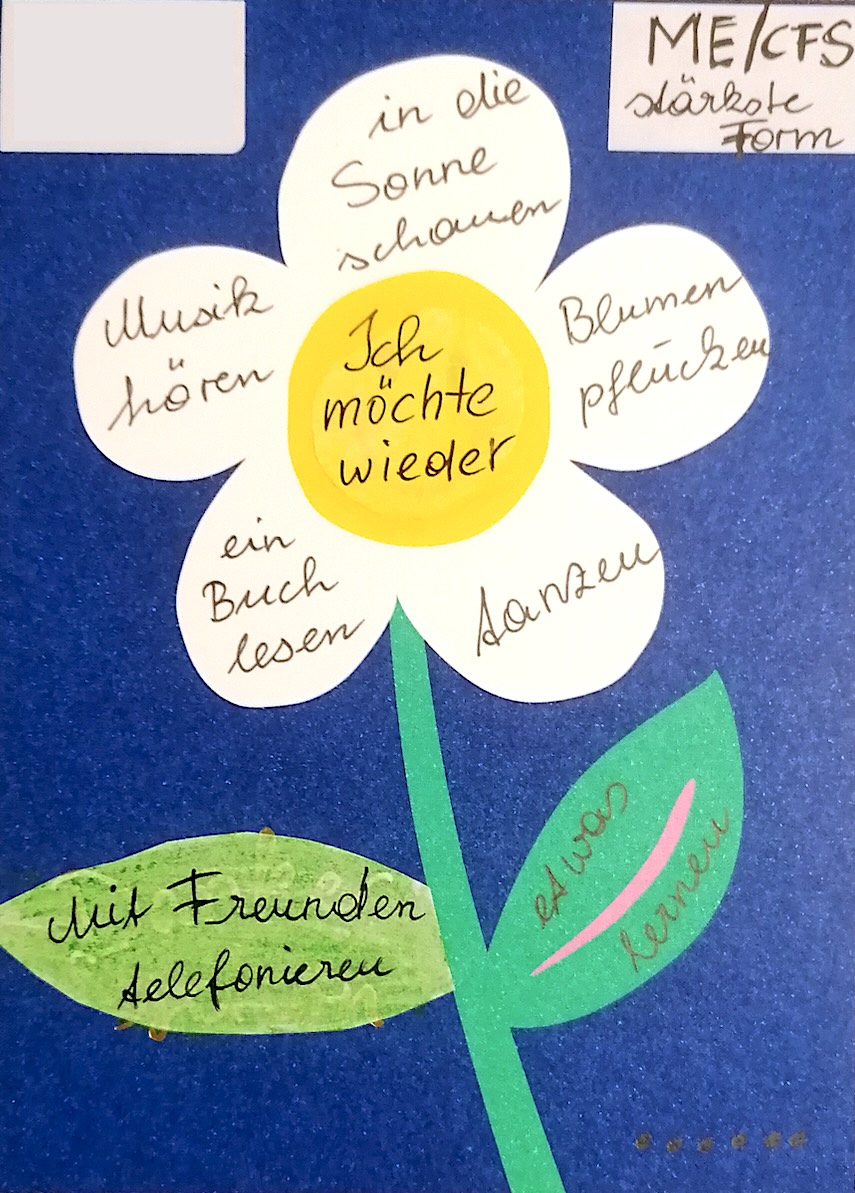 ME/CFS
stärkste
Form
in die
Sonne
schauen
Musik
hören
Ich
möchte
wieder
Blumen
pflücken
ein
Buch
lesen
tanzen
etwas
lernen
Mit Freunden
telefonieren
......